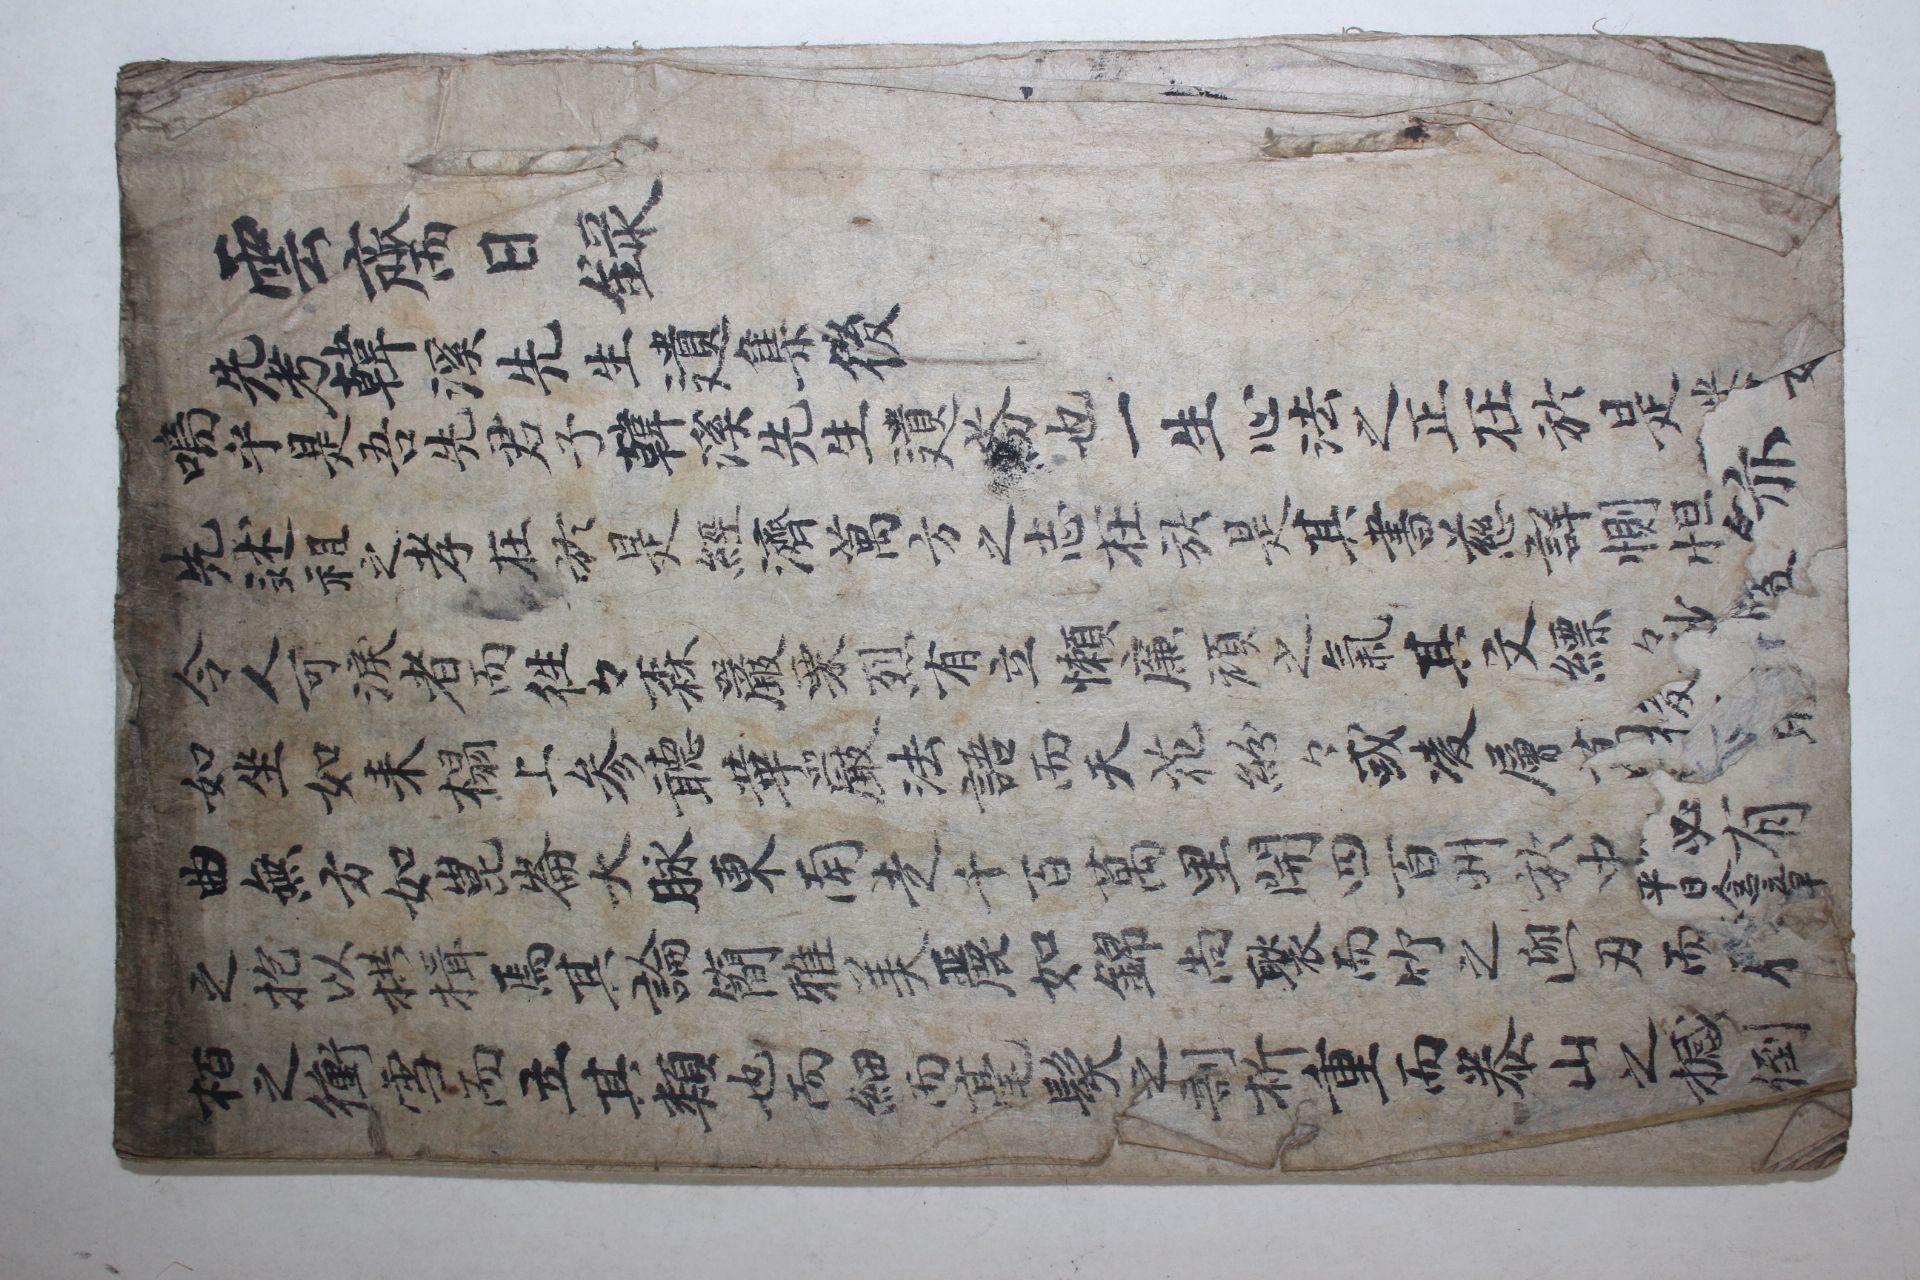 雲齋日錄
先考韓溪先生遺集後
嗚乎是吾先君子韓溪先生遺芬也一生心法之正在於是
先述祖之孝在於是經濟萬方之志在於是其書慈詳惻怛 亦
令人可淚者而徃々森嚴栗烈有立懶廉頑之氣其文縹々
如坐如来榻上参聽華嚴法語而天花紛々或凌層
曲無方如崑崙大脉東南走千百萬里開四百州於中必有
平日含章
之抱以拱揖焉其論簡雅美麗如錦尚褧而竹之迎刃而
栢之衝雪而立其類也而細而毫髮之剖析重而泰山之撼倒